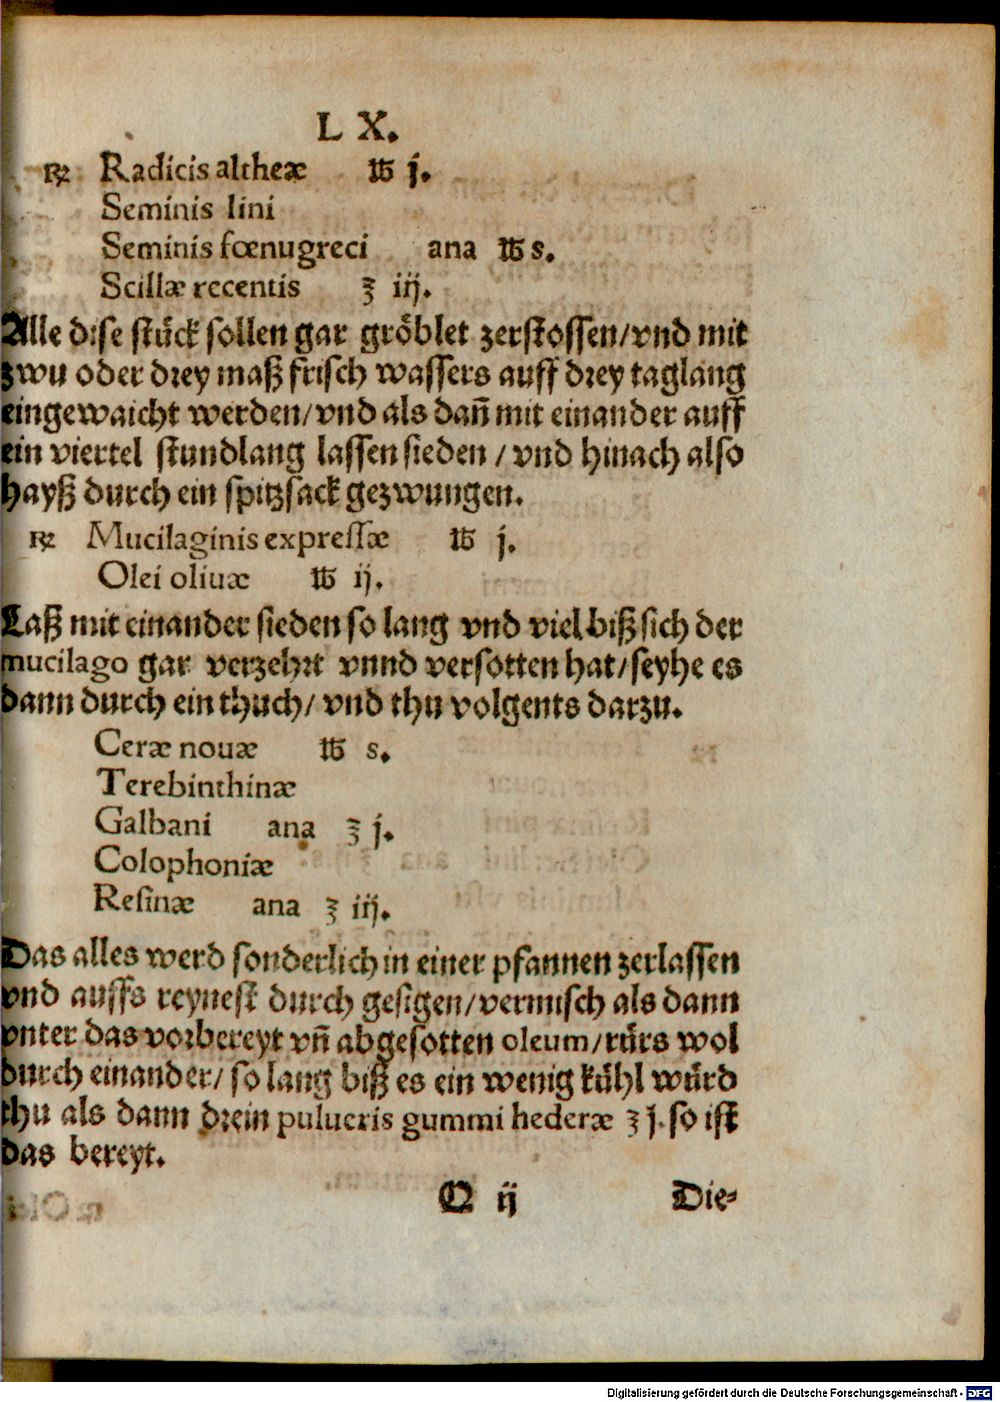 L X.
℞ Radicis altheæ ℔ j.
Seminis lini
Seminis fœnugreci ana ℔ s.
Scillæ recentis ʒ iij.
Alle dise stuͤck sollen gar groͤblet zerstossen/vnd mit
zwu oder drey maß frisch wassers auff drey taglang
eingewaicht werden/vnd als dañ mit einander auff
ein viertel stundlang lassen sieden / vnd hinach also
hayß durch ein spitzsack gezwungen.
℞ Mucilaginis expressæ ℔ j.
Olei oliuæ ℔ ij.
Laß mit einander sieden so lang vnd viel biß sich der
mucilago gar verzehrt vnnd versotten hat/seyhe es
dann durch ein thuch/ vnd thu volgents darzu.
Ceræ nouæ ℔ s.
Terebinthinæ
Galbani ana ʒ j.
Colophoniæ
Resinæ ana ʒ iij.
Das alles werd sonderlich in einer pfannen zerlassen
vnd auffs reynest durch gesigen/vermisch als dann
vnter das vorbereyt vñ abgesotten oleum/ruͤrs wol
durch einander/ so lang biß es ein wenig kuͤhl wuͤrd
thu als dann drein pulueris gummi hederæ ʒ j. so ist
das bereyt.
Q ij Die⸗
Digitalisierung gefördert durch die Deutsche Forschungsgemeinschaft - DFG